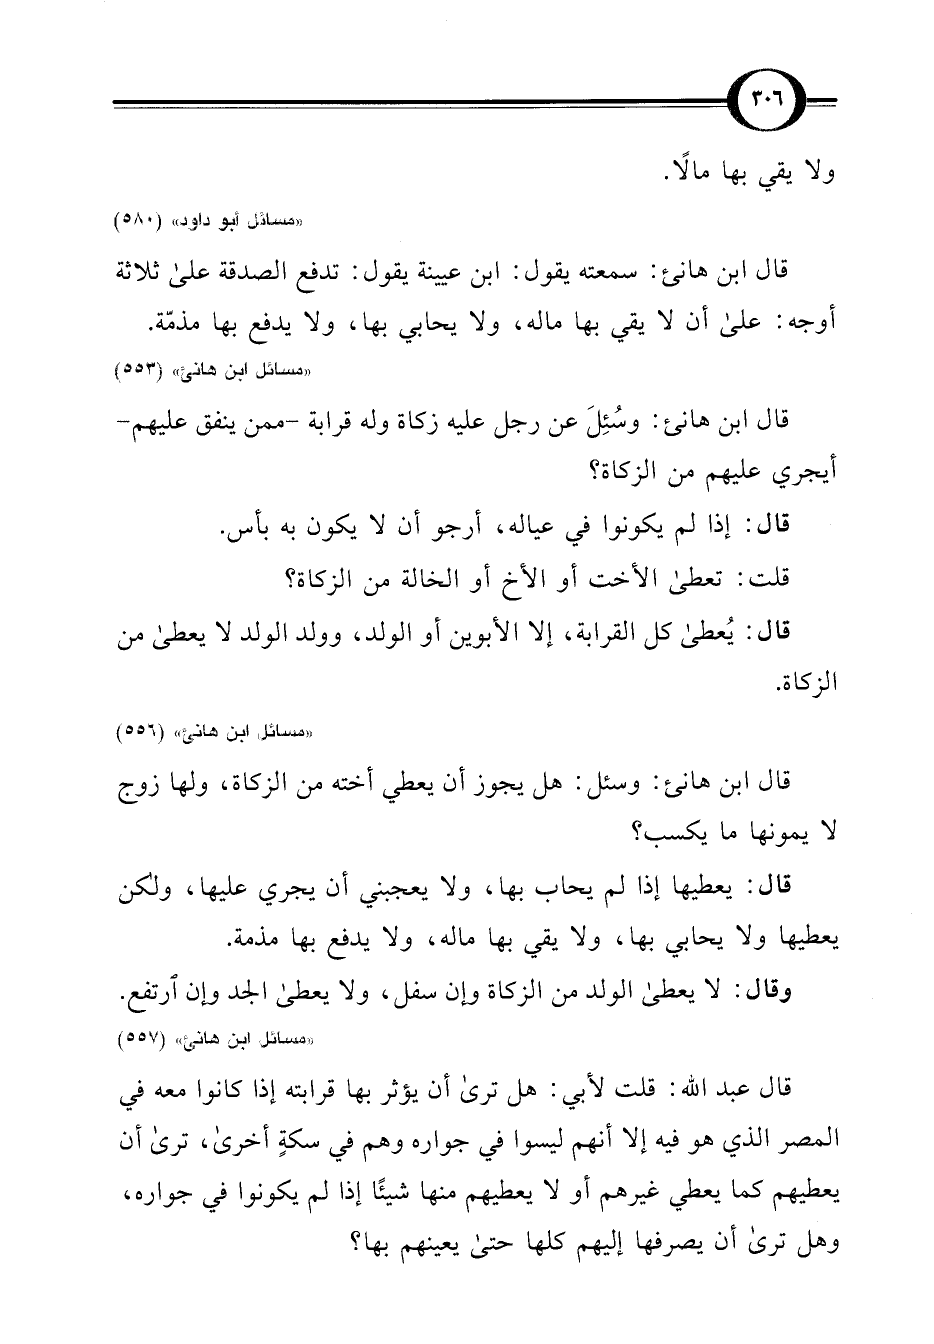 ٣٠٦
ولا يقي بها مالًا.
«مسائل أبو داود» (٥٨٠)
قال ابن هانئ: سمعته يقول: ابن عيينة يقول: تدفع الصدقة علىٰ ثلاثة
أوجه: علىٰ أن لا يقي بها ماله، ولا يحابي بها، ولا يدفع بها مذمّة.
«مسائل ابن هانئ» (٥٥٣)
قال ابن هانئ: وسُئِلَ عن رجل عليه زكاة وله قرابة -ممن ينفق عليهم-
أيجري عليهم من الزكاة؟
قال: إذا لم يكونوا في عياله، أرجو أن لا يكون به بأس.
قلت: تعطىٰ الأخت أو الأخ أو الخالة من الزكاة؟
قال: يُعطىٰ كل القرابة، إلا الأبوين أو الولد، وولد الولد لا يعطىٰ من
الزكاة.
«مسائل ابن هانئ» (٥٥٦)
قال ابن هانئ: وسئل: هل يجوز أن يعطي أخته من الزكاة، ولها زوج
لا يمونها ما يكسب؟
قال: يعطيها إذا لم يحاب بها، ولا يعجبني أن يجري عليها، ولكن
يعطيها ولا يحابي بها، ولا يقي بها ماله، ولا يدفع بها مذمة.
وقال: لا يعطىٰ الولد من الزكاة وإن سفل، ولا يعطىٰ الجد وإن ٱرتفع.
«مسائل ابن هانئ» (٥٥٧)
قال عبد الله: قلت لأبي: هل ترىٰ أن يؤثر بها قرابته إذا كانوا معه في
المصر الذي هو فيه إلا أنهم ليسوا في جواره وهم في سكةٍ أخرىٰ، ترىٰ أن
يعطيهم كما يعطي غيرهم أو لا يعطيهم منها شيئًا إذا لم يكونوا في جواره،
وهل ترىٰ أن يصرفها إليهم كلها حتىٰ يعينهم بها؟